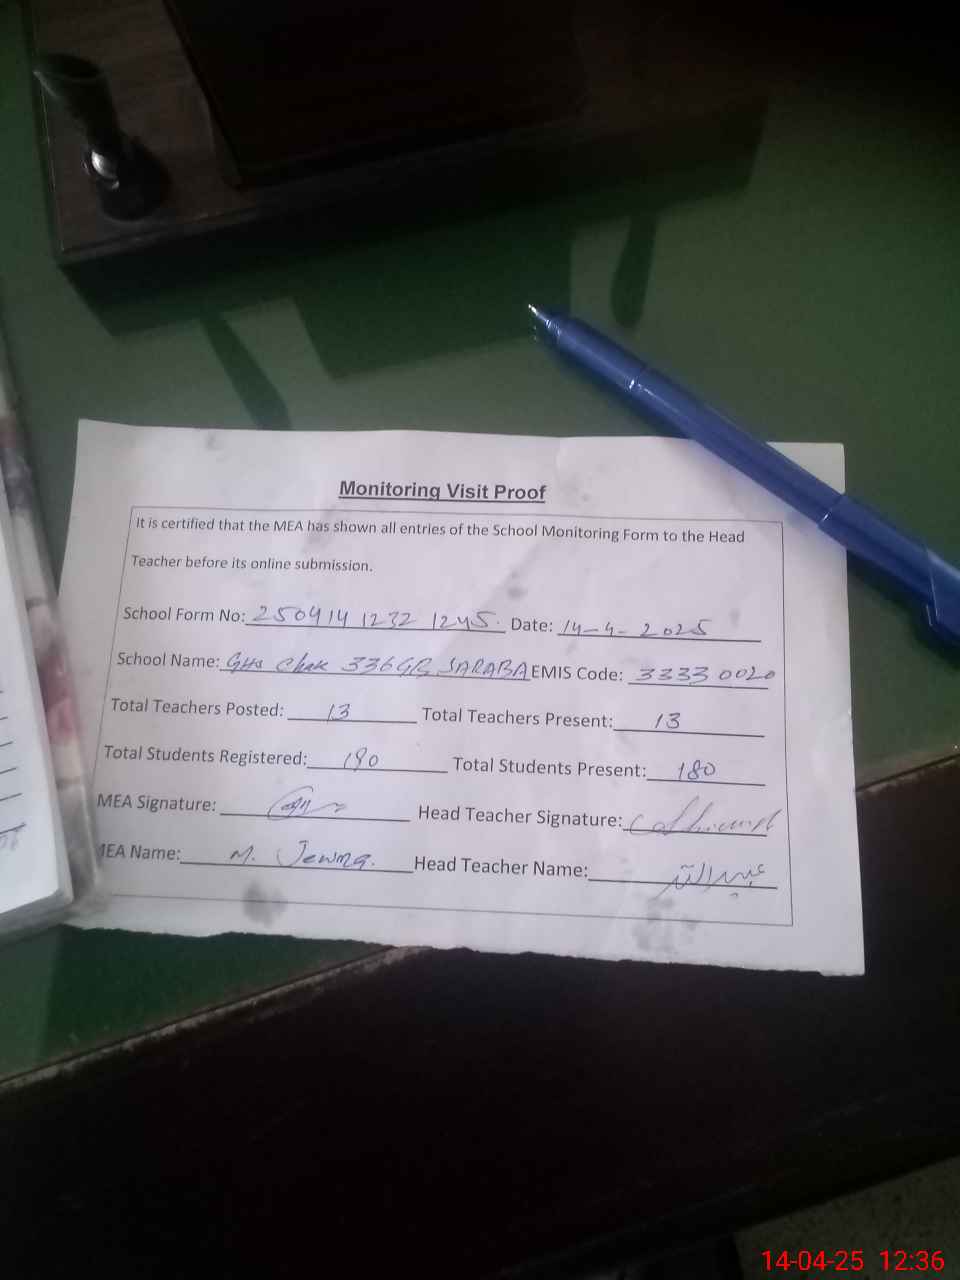 Monitoring Visit Proof
It is certified that the MEA has shown all entries of the School Monitoring Form to the Head
Teacher before its online submission.
School Form No: 250414 1232 1245. Date: 14-4-2025
School Name: GHS Chak 336GB SARABA EMIS Code: 3333 0020
Total Teachers Posted: 13 Total Teachers Present: 13
Total Students Registered: 180 Total Students Present: 180
MEA Signature: Head Teacher Signature:
MEA Name: M. Head Teacher Name:
14-04-25 12:36